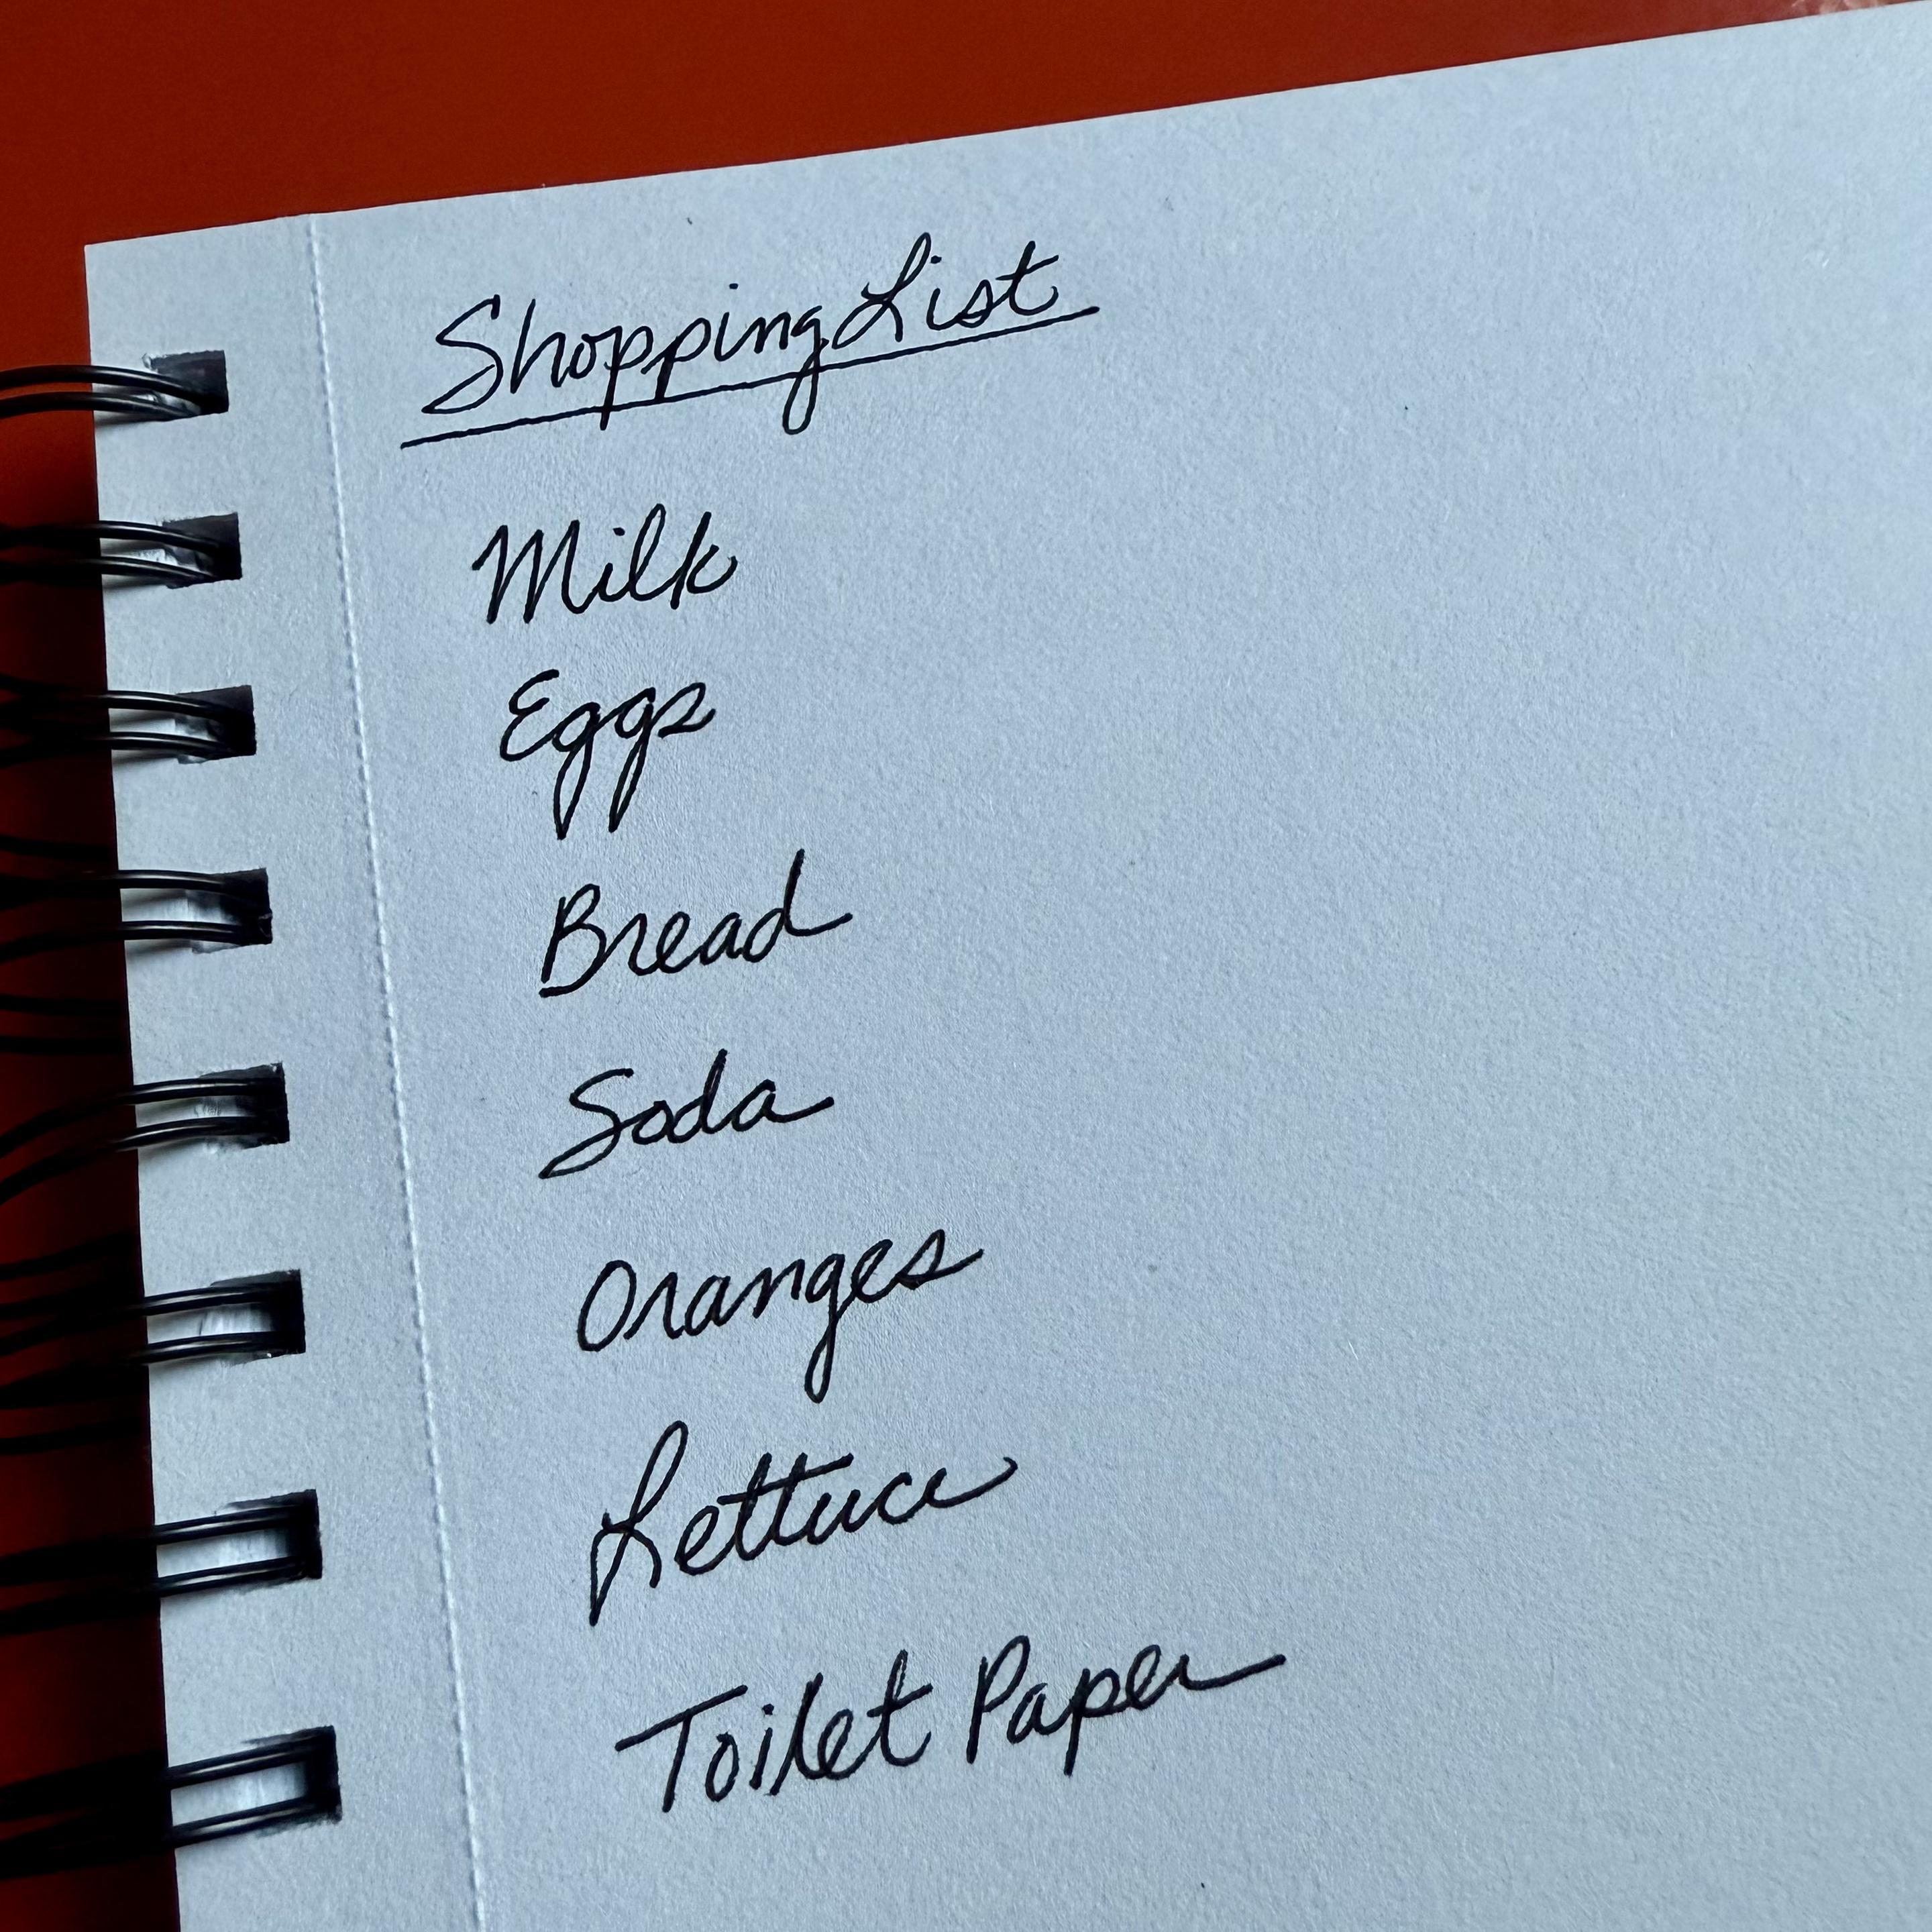 Shopping List
Milk
Eggs
Bread
Soda
Oranges
Lettuce
Toilet Paper